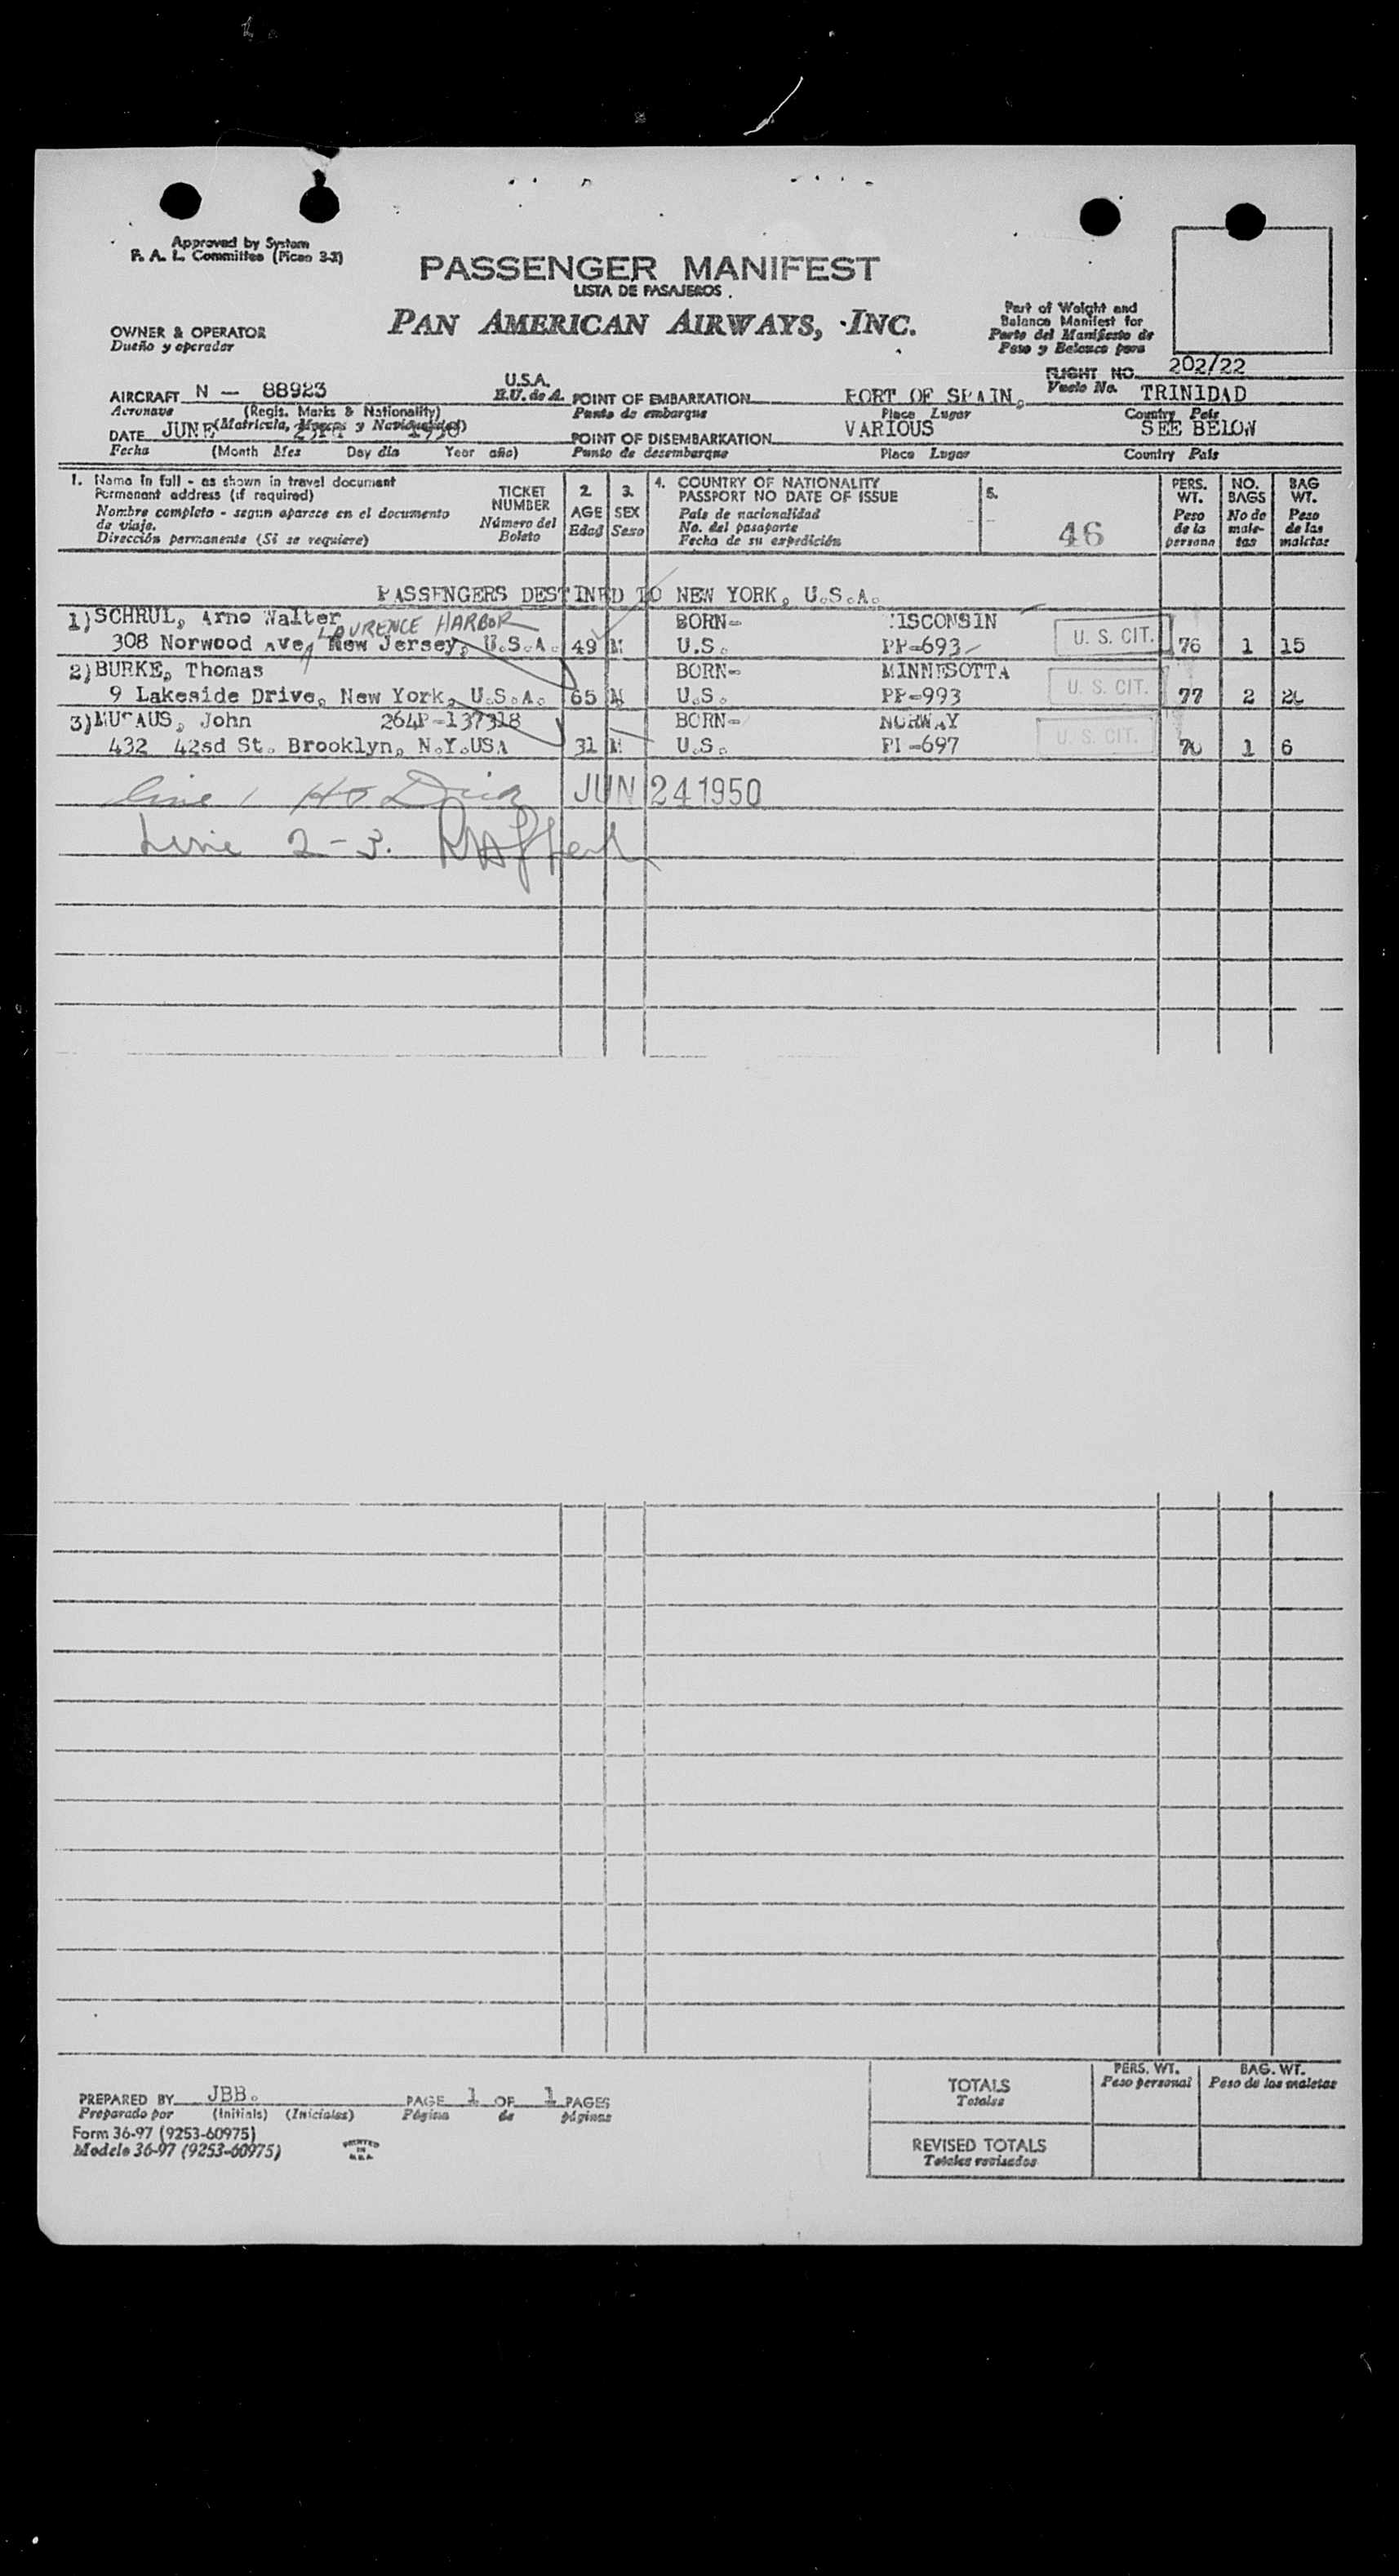 Approved by System
F. A. L. Committee (Picao 3-3)
PASSENGER MANIFEST
LISTA DE PASAJEROS
PAN AMERICAN AIRWAYS, INC.
OWNER & OPERATOR
Dueño y operador
Part of Weight and
Balance Manifest for
Parte del Manifiesto de
Peso y Balance para
FLIGHT NO. 202/22
Vuelo No.
AIRCRAFT N - 88923 U.S.A.
Aeronave (Regis. Marks & Nationality) E.U. de A.
(Matricula, Marcas y Nacionalidad)
POINT OF EMBARKATION PORT OF SPAIN, TRINIDAD
Punto de embarque Place Lugar Country País
DATE JUNE 1950
Fecha (Month Mes Day dia Year año)
POINT OF DISEMBARKATION VARIOUS SEE BELOW
Punto de desembarque Place Lugar Country País
1. Name in full - as shown in travel document
Permanent address (if required)
Nombre completo - segun aparece en el documento
de viaje.
Dirección permanente (Si se requiere)
TICKET
NUMBER
Número del
Boleto
2.
AGE
Edad
3.
SEX
Sexo
4. COUNTRY OF NATIONALITY
PASSPORT NO DATE OF ISSUE
País de nacionalidad
No. del pasaporte
Fecha de su expedición
5.
46
PERS.
WT.
Peso
de la
persona
NO.
BAGS
No de
male-
tas
BAG
WT.
Peso
de las
maletas
PASSENGERS DESTINED TO NEW YORK, U.S.A.
1) SCHRUL, Arno Walter BORN- WISCONSIN
LAURENCE HARBOR
308 Norwood Ave, New Jersey, U.S.A. 49 M U.S. PP-693 U. S. CIT. 76 1 15
2) BURKE, Thomas BORN- MINNESOTTA
9 Lakeside Drive, New York, U.S.A. 65 M U.S. PP-993 U. S. CIT. 77 2
3) John 264P-137318 BORN- NORWAY
432 42sd St. Brooklyn, N.Y.USA 31 M U.S. -697 U. S. CIT. 70 1 6
Line 1 JUN 24 1950
Line 2-3.
PREPARED BY JBB. PAGE 1 OF 1 PAGES
Preparado por (Initials) (Iniciales) Página de páginas
Form 36-97 (9253-60975)
Modelo 36-97 (9253-60975)
PRINTED
IN
U.S.A.
PERS. WT.
Peso personal
BAG. WT.
Peso de las maletas
TOTALS
Totales
REVISED TOTALS
Totales revisados